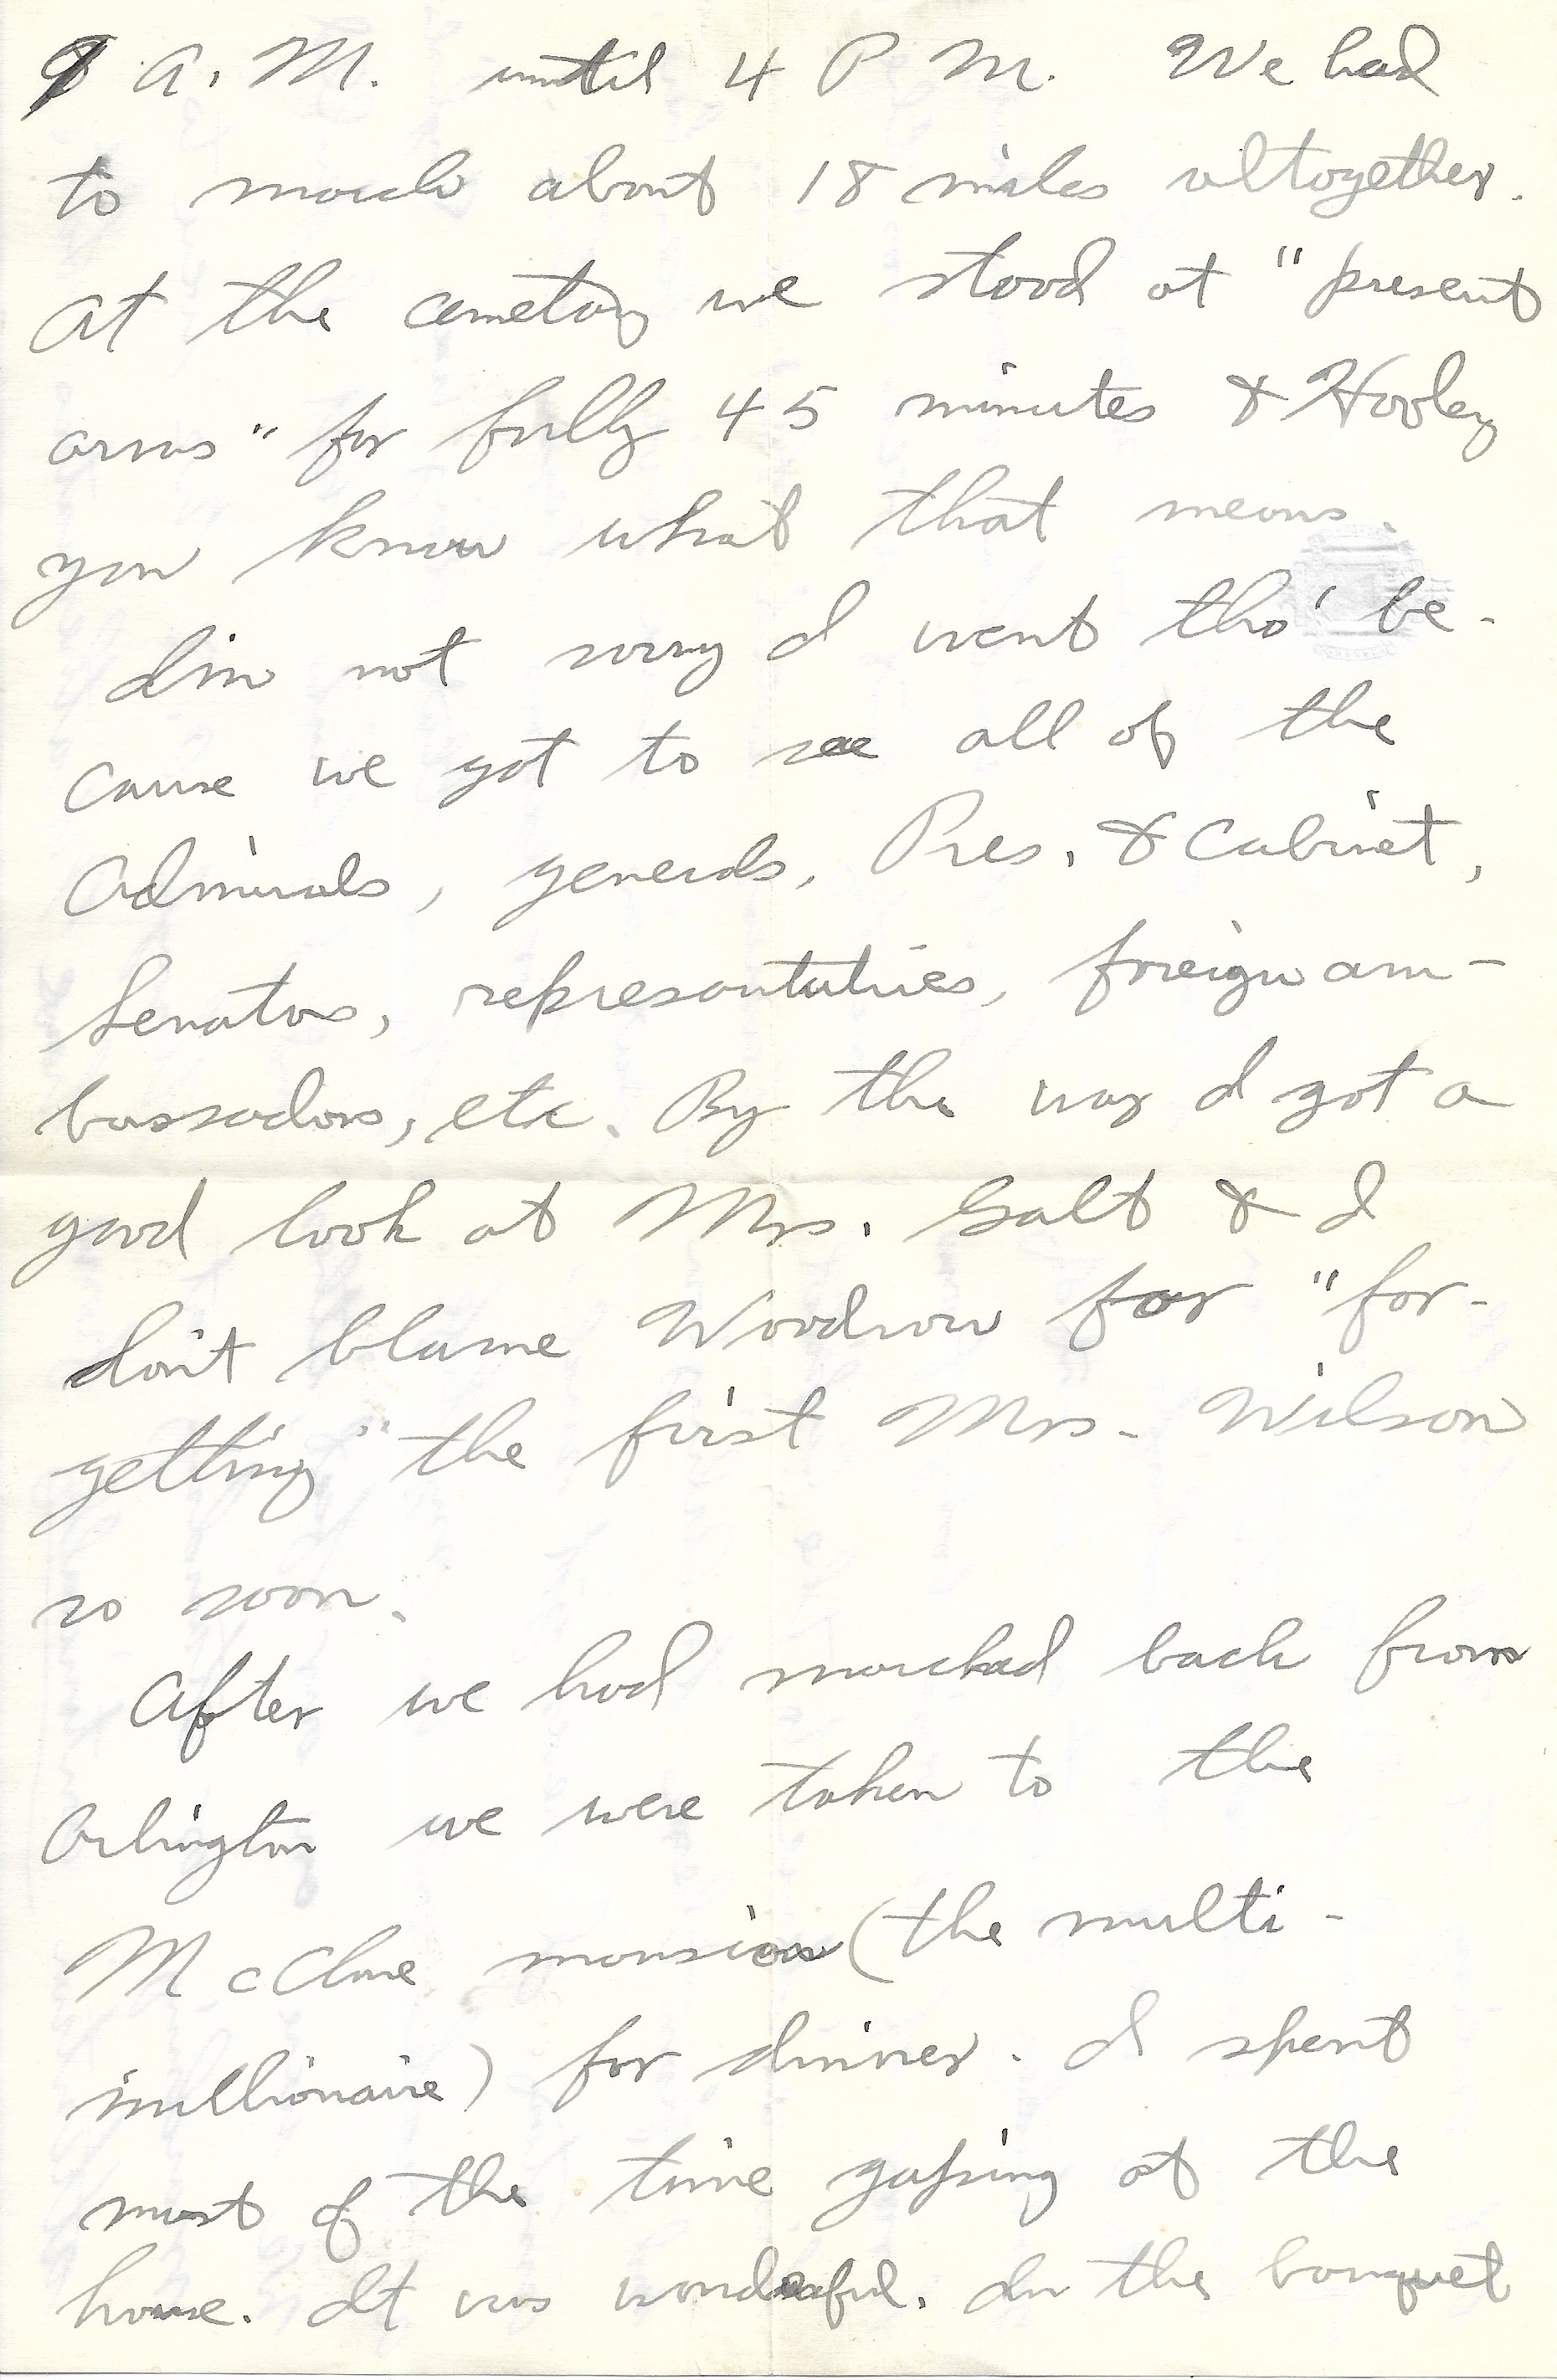 A.M. until 4 P M. We had
to march about 18 miles altogether.
At the cemetery we stood at "present
arms" for fully 45 minutes & Hooley
you know what that means.
I'm not sorry I went tho' be-
cause we got to see all of the
Admirals, generals, Pres. & Cabinet,
Senators, representatives, foreign am-
bassadors, etc. By the way I got a
good look at Mrs. Galt & I
don't blame Woodrow for "for-
getting" the first Mrs. Wilson
so soon.
After we had marched back from
Arlington we were taken to the
mansion (the multi-
millionaire) for dinner. I spent
most of the time gasping at the
house. It was wonderful. In the banquet